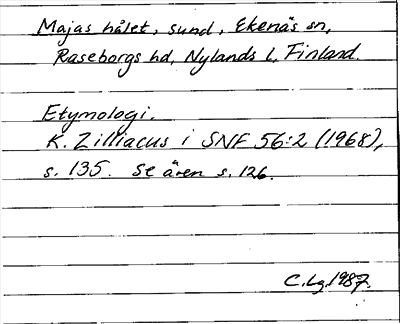 Majas hålet, sund, Ekenäs sn,
Raseborgs hd, Nylands l, Finland.
Etymologi.
K. Zilliacus i SNF 56:2 (1968),
s. 135. Se även s. 126.
C. Lg. 1987.